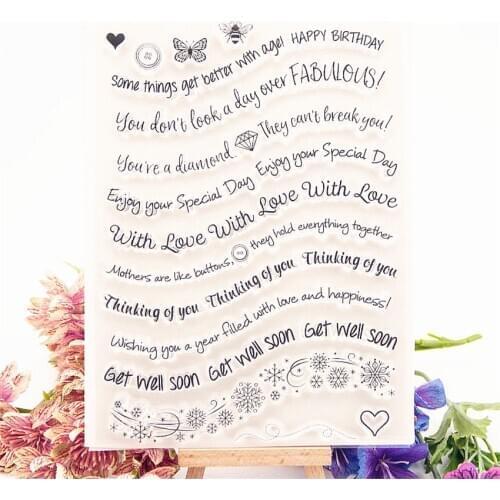 HAPPY BIRTHDAY
Some things get better with age!
You don't look a day over FABULOUS!
You're a diamond. They can't break you!
Enjoy your Special Day Enjoy your Special Day
With Love With Love With Love
Mothers are like buttons, they hold everything together
Thinking of you Thinking of you Thinking of you
Wishing you a year filled with love and happiness!
Get Well soon Get Well soon Get Well soon